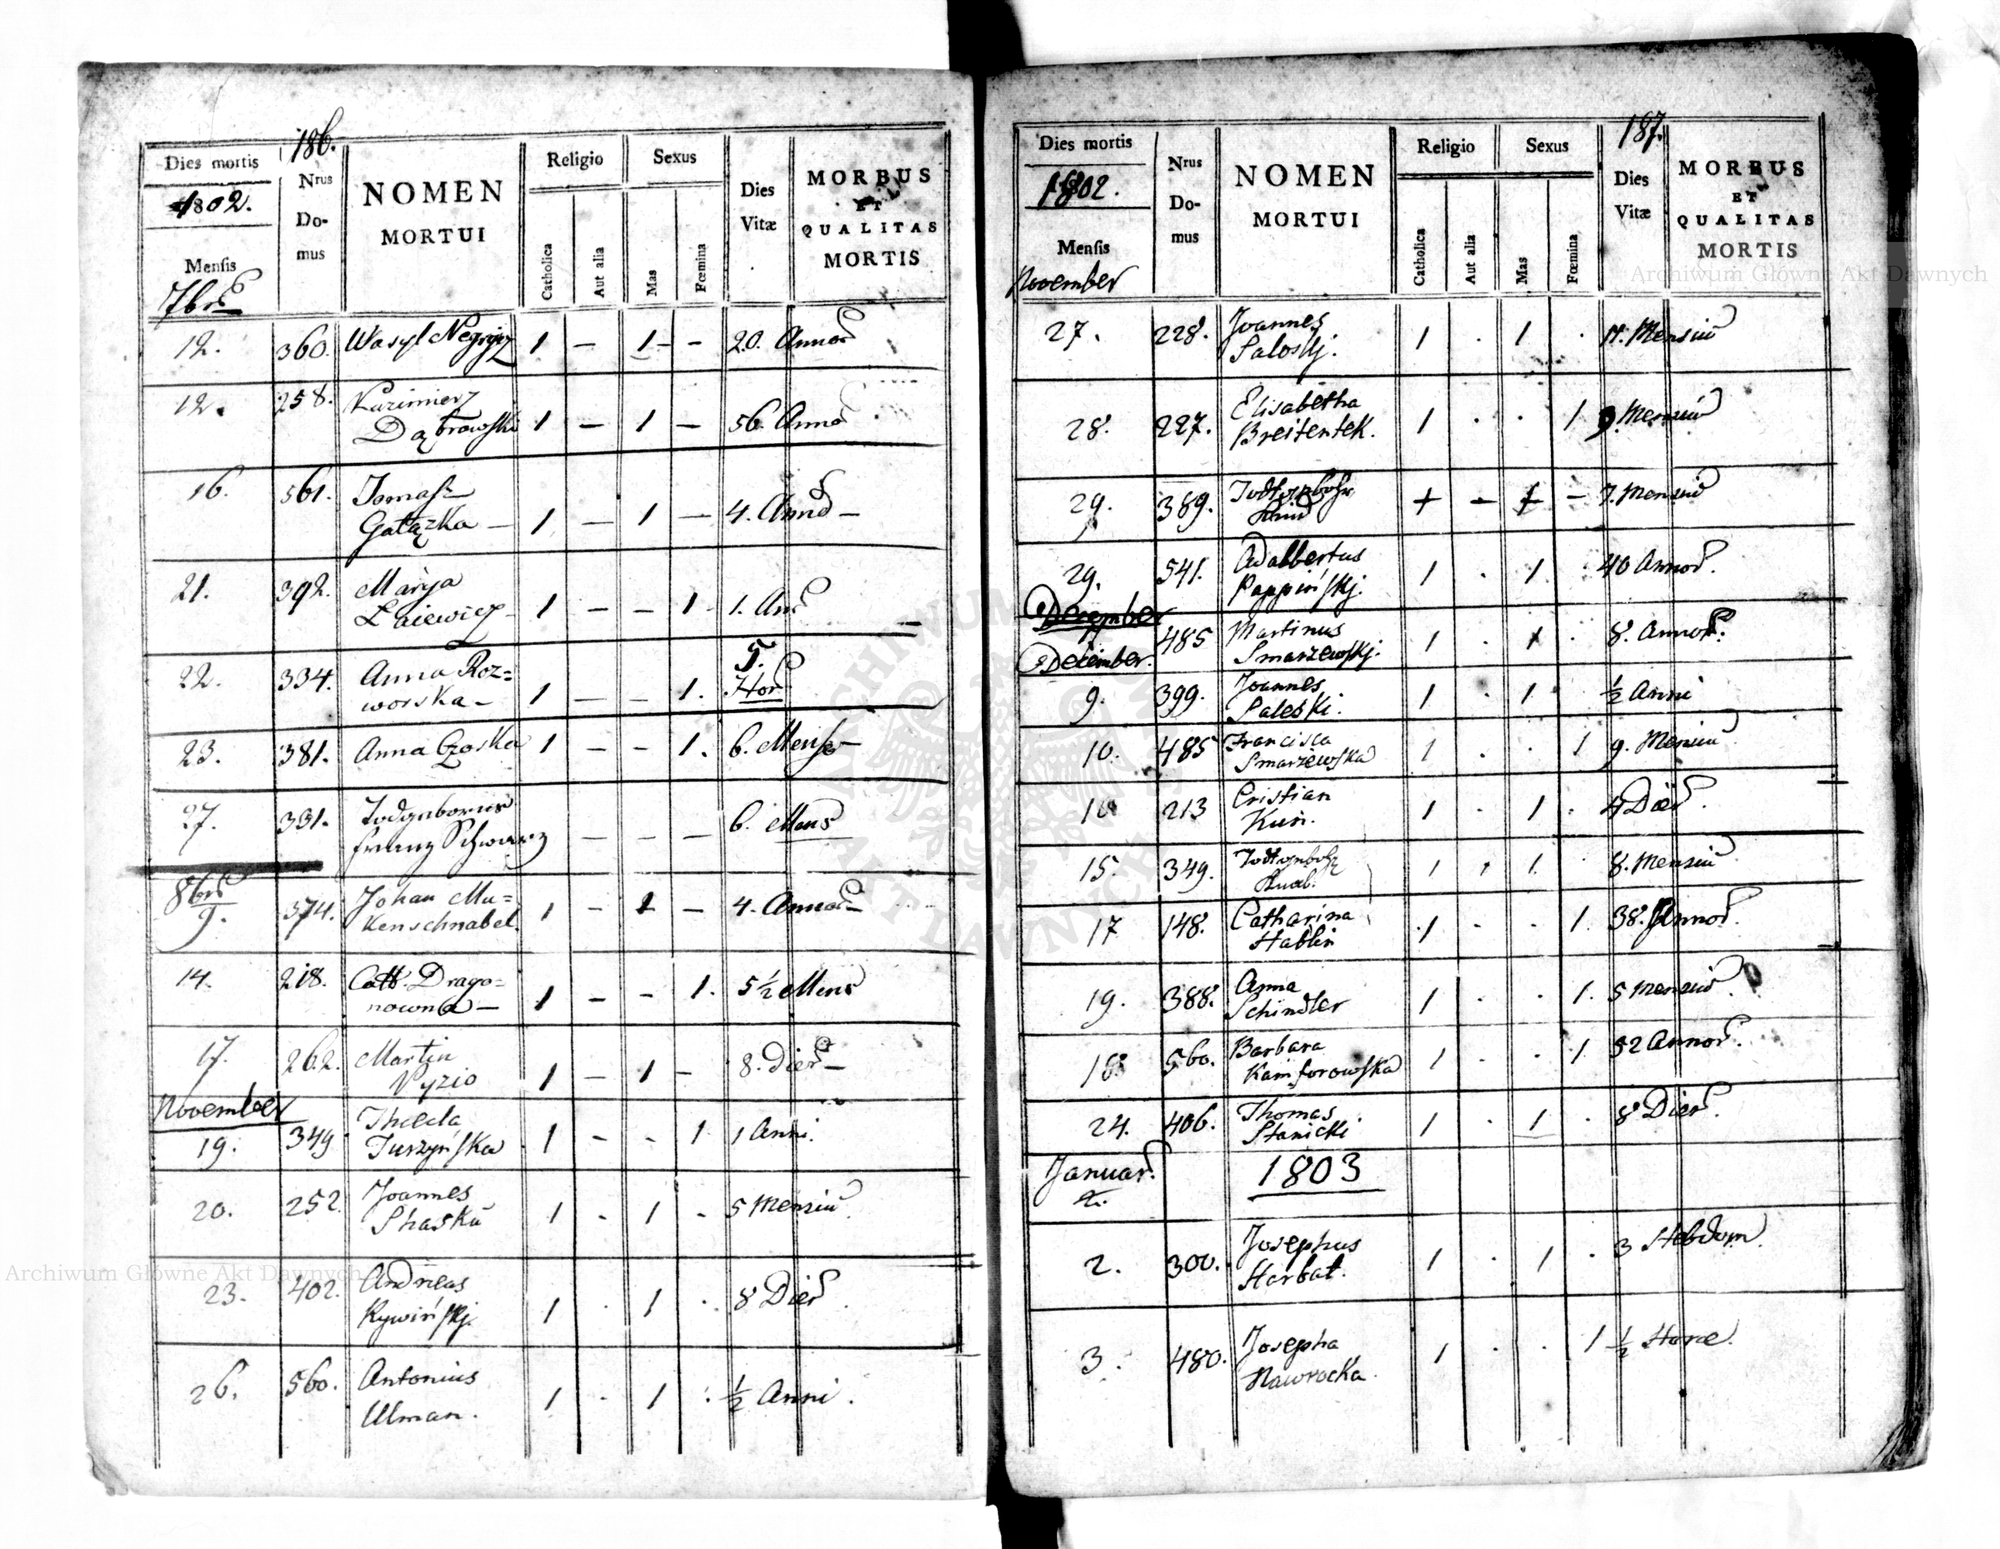 186.
Dies mortis
1802.
Mensis
7bris
Nrus
Do-
mus
NOMEN
MORTUI
Religio
Catholica
Aut alia
Sexus
Mas
Fœmina
Dies
Vitæ
MORBUS
ET
QUALITAS
MORTIS
12. 360. Wasyl Negrycz 1 – 1 – 20. Annor
12. 258. Kazimierz
Dąbrowski 1 – 1 – 56. Annor
16. 561. Tomasz
Gałązka – 1 – 1 – 4. Annor –
21. 392. Marya
1 – – 1 1. Ani
22. 334. Anna Roz=
worska – 1 – – 1. 5. Hor
23. 381. Anna Czoska 1 – – 1. 6. Mens
27. 331. Todgebohrner
Franz Schwarz – – – 6. Mens
8bris
9. 374. Johan Mu=
kenschnabel. 1 – 1 – 4. Annor –
14. 218. Cath. Drago=
nowna – 1 – – 1. 5 ½ Mens
17. 262. Martin
Nyzio 1 – 1 – 8. Dier –
November
19. 349. Thecla
Turzyńska 1 – – 1 1 Anni.
20. 252. Joannes
1 - 1 - 5 Mensiu
23. 402. Andreas
Rywińskj. 1 . 1 . 8 Dier
26. 560. Antonius
Ulman. 1 . 1 . ½ Anni.
187.
Dies mortis
1802.
Mensis
November
Nrus
Do-
mus
NOMEN
MORTUI
Religio
Catholica
Aut alia
Sexus
Mas
Fœmina
Dies
Vitæ
MORBUS
ET
QUALITAS
MORTIS
27. 228. Joannes
Saloskj. 1 . 1 . 11. Mensiu
28. 227. Elisabetha
Breitentek. 1 . . 1 9. Mensiu
29. 389. Todtgebohr
Kind + – + – 7. Mensiu
29. 541. Adalbertus
Pappińskj. 1 . 1 . 40 Annor.
December
December. 485 Martinus
Smarzewskj. 1 . 1 . 8. Annor.
9. 399. Joannes
Saleski. 1 . 1 ½ Anni
10. 485 Francisca
Smarzewska 1 . . 1 9. Mensiu
10 213 Cristian
Kun. 1 . 1 . 4 Dier.
15. 349. Todtgeboh
Knab. 1 . 1. 8. Mensiu
17 148. Catharina
Hablin 1 . . 1. 38. Annor.
19. 388. Anna
Schindler 1 . . 1. 5 Mensiu
18. 560. Barbara
Kamforowska 1 . . 1. 52 Annor.
24. 406. Thomas
Stanicki 1 . 1 . 8 Dier.
Januar. 1803
2. 300. Josephus
Harbat. 1 . 1 . 3 Hebdom.
3. 480. Josepha
Nawrocka. 1 . . 1 ½ Horæ.
Archiwum Główne Akt Dawnych
Archiwum Główne Akt Dawnych
ARCHIWUM GŁÓWNE AKT DAWNYCH